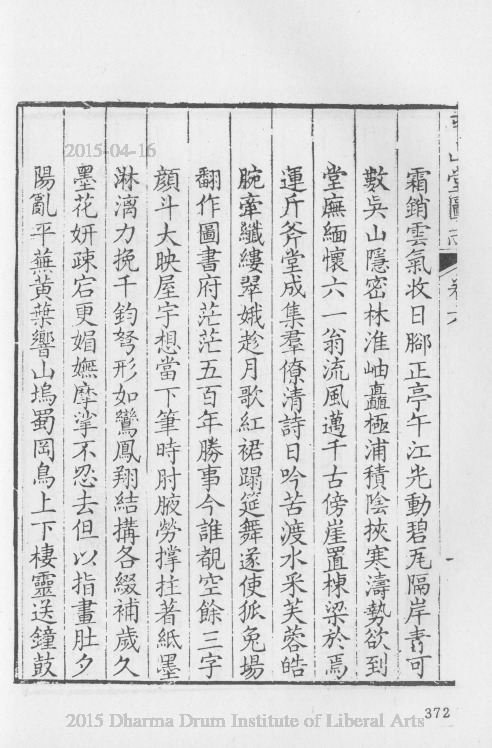 2015-04-16
平山堂圖志
卷六
霜銷雲氣收日腳正亭午江光動碧瓦隔岸青可
數吳山隱密林淮岫矗極浦積陰挾寒濤勢欲到
堂廡緬懷六一翁流風邁千古傍崖置棟梁於焉
運斤斧堂成集羣僚清詩日吟苦渡水采芙蓉皓
腕牽纖縷翠娥趁月歌紅裙蹋筵舞遂使狐兔場
翻作圖書府茫茫五百年勝事今誰覩空餘三字
顏斗大映屋宇想當下筆時肘腋勞撐拄著紙墨
淋漓力挽千鈞弩形如鸞鳳翔結搆各綴補歲久
墨花妍疎宕更媚嫵摩挲不忍去但以指畫肚夕
陽亂平蕪黃葉響山塢蜀岡鳥上下棲靈送鐘鼓
372
2015 Dharma Drum Institute of Liberal Arts